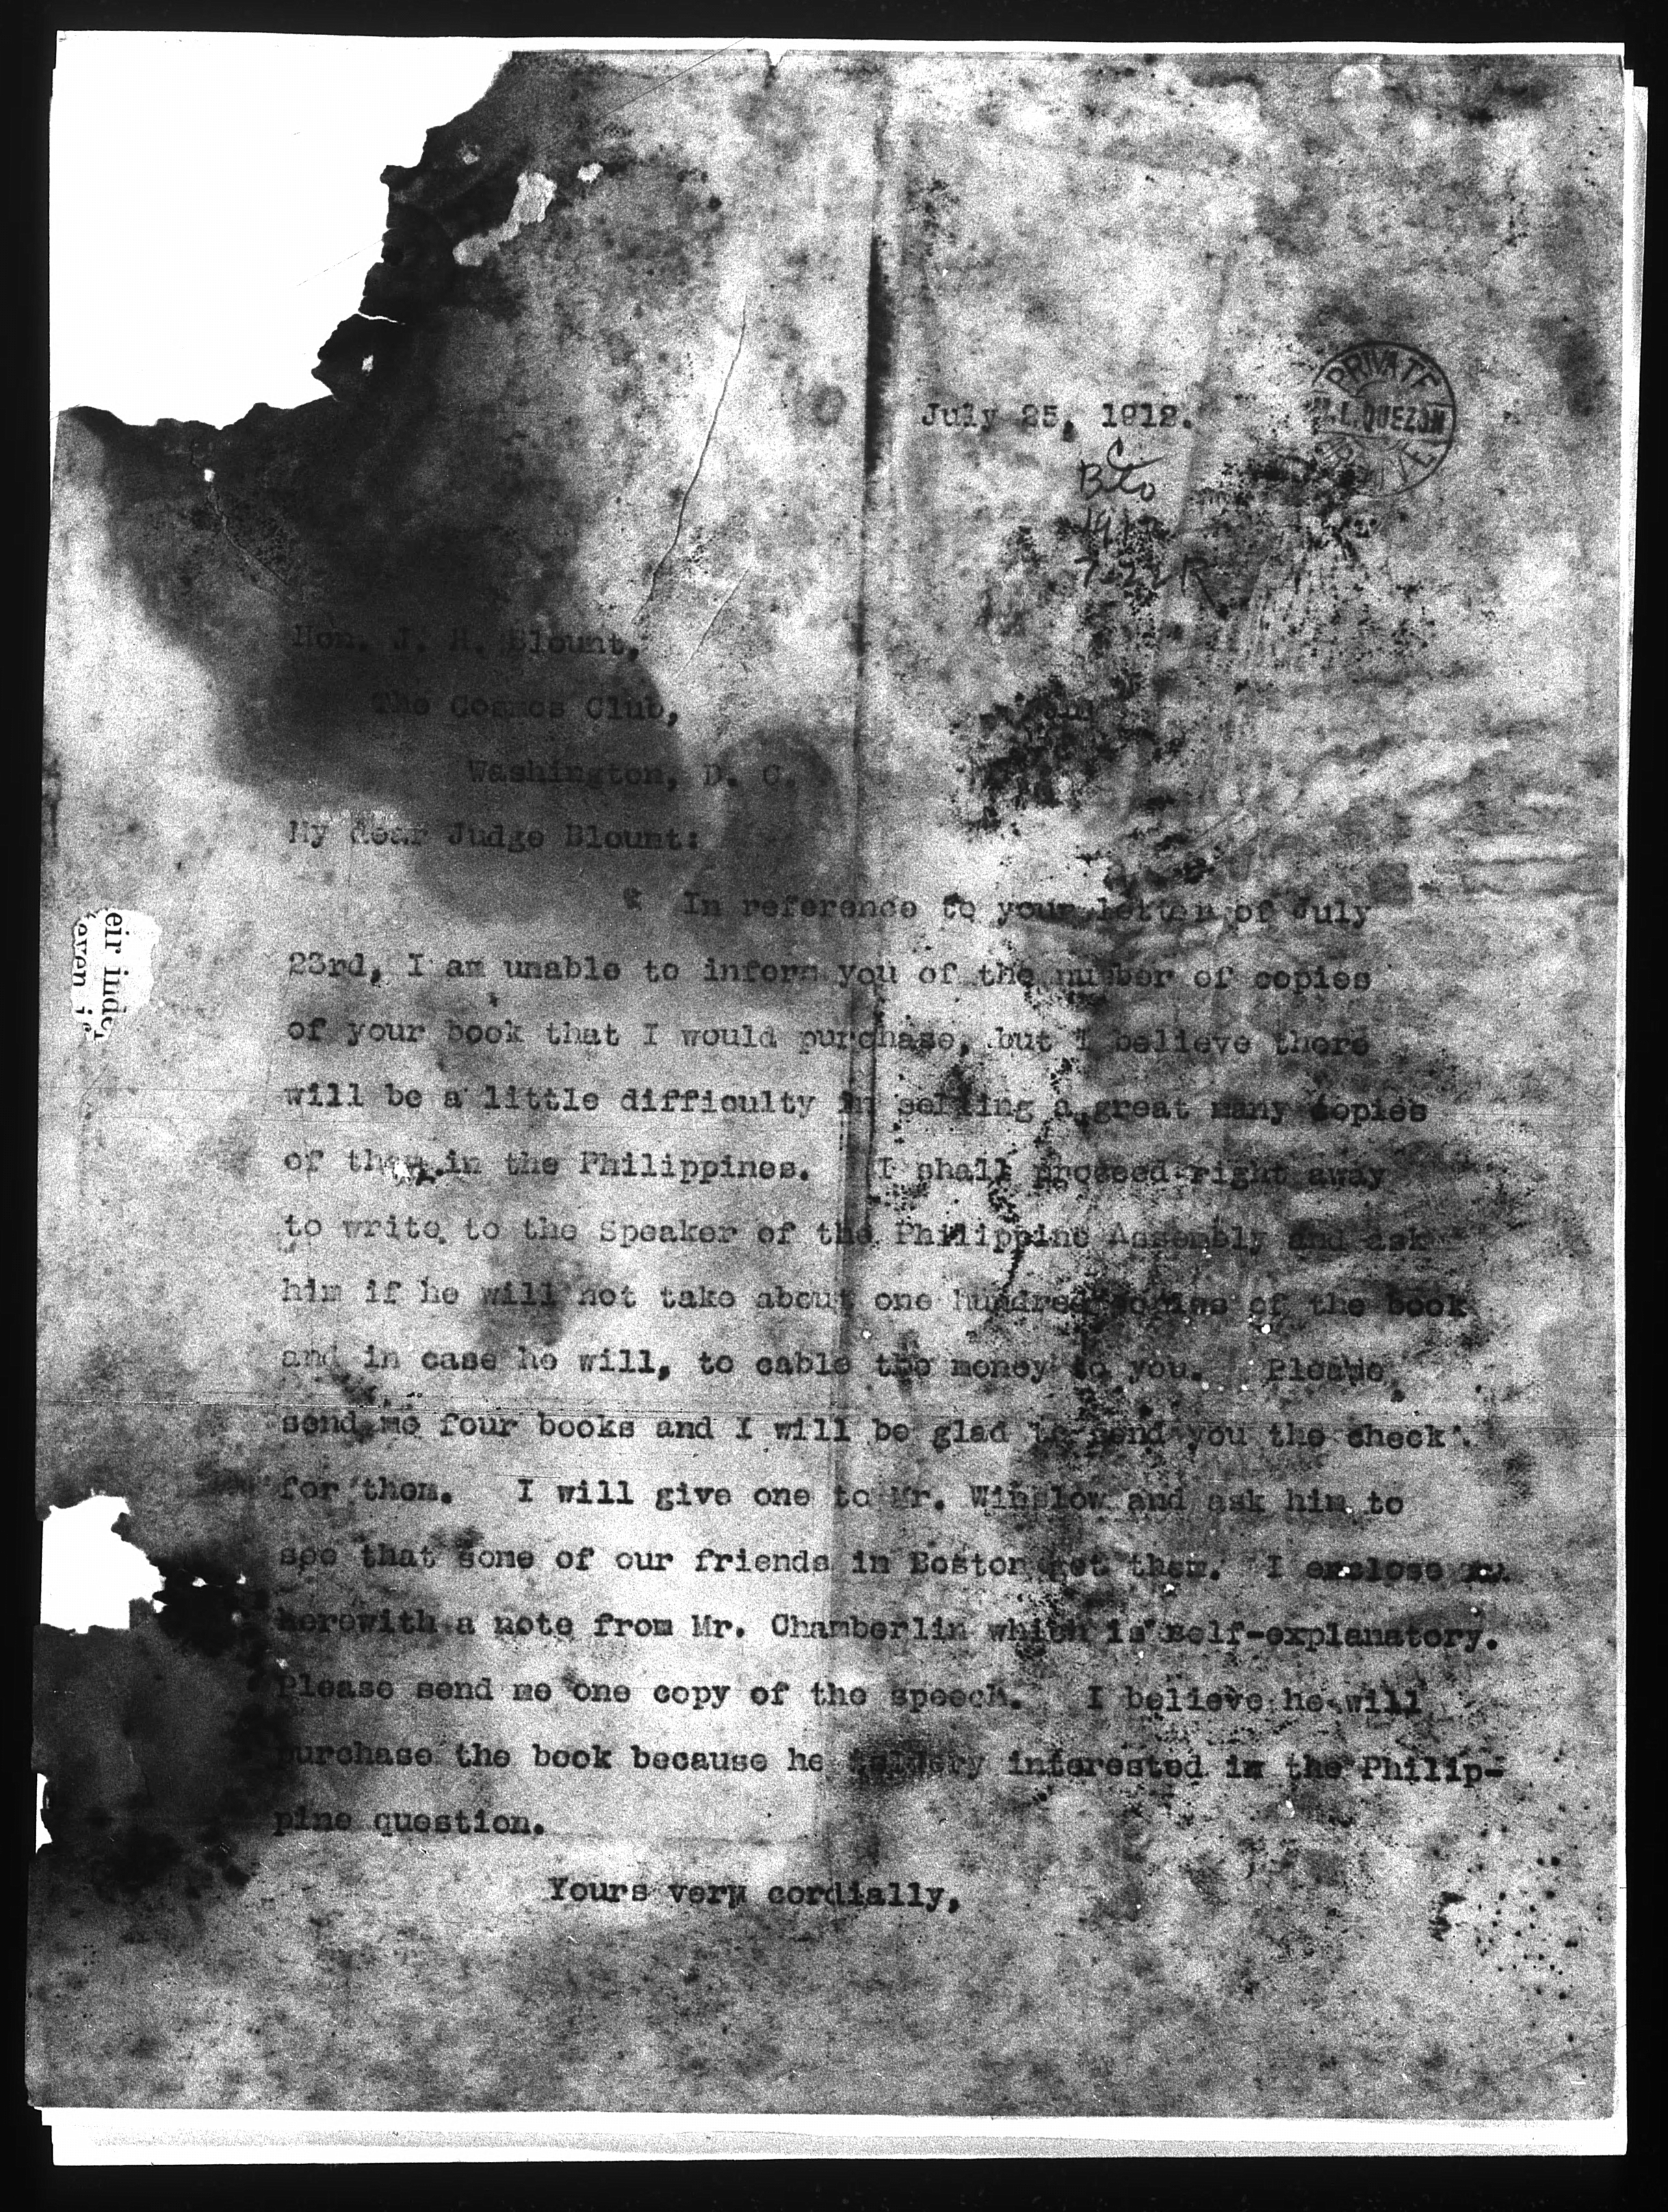 July 25, 1912.
PRIVATE
M.L.QUEZON
7-22 R
Hon. J. H. Blount,
The Cosmos Club,
Washington, D. C.
My dear Judge Blount:
In reference to your letter of July
23rd, I am unable to inform you of the number of copies
of your book that I would purchase, but I believe there
will be a little difficulty in selling a great many copies
of them in the Philippines. I shall proceed right away
to write to the Speaker of the Philippine Assembly and ask
him if he will not take about one hundred copies of the book
and in case he will, to cable the money to you. Please
send me four books and I will be glad to send you the check
for them. I will give one to Mr. Winslow and ask him to
see that some of our friends in Boston get them. I enclose
herewith a note from Mr. Chamberlin which is self-explanatory.
Please send me one copy of the speech. I believe he will
purchase the book because he interested in the Philip-
pine question.
Yours very cordially,
eir inde
even